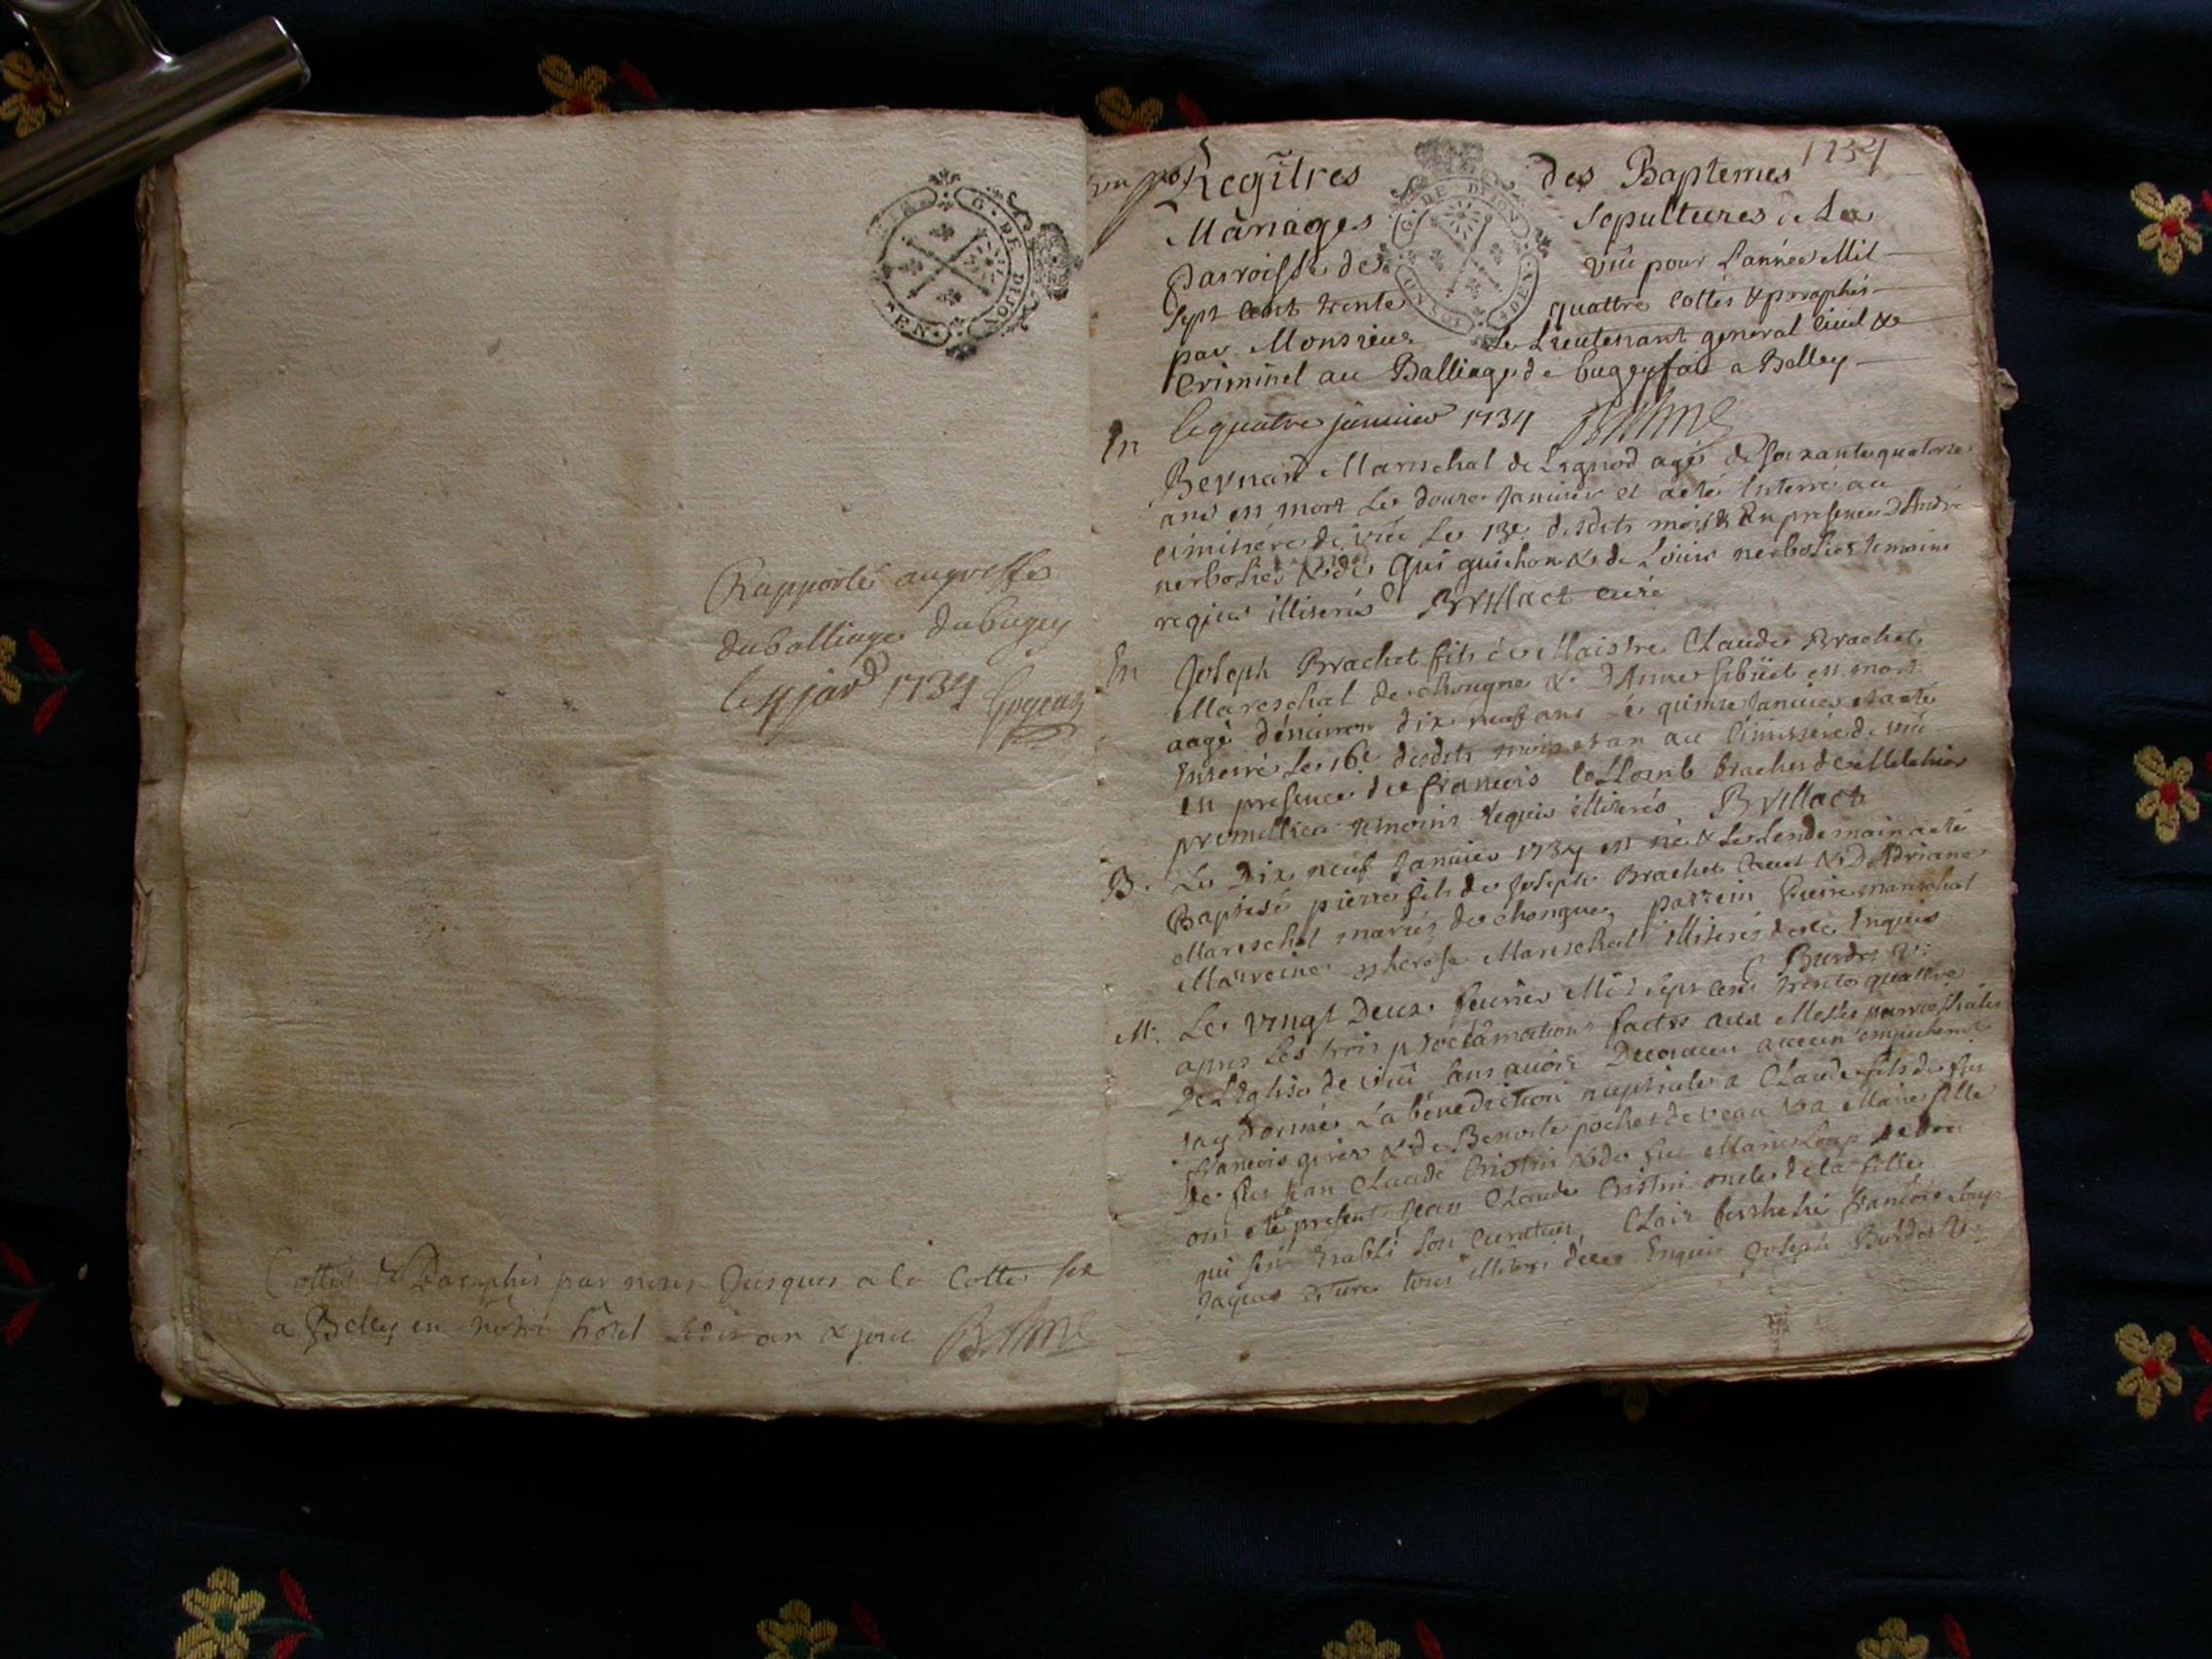 G · DE DIJON
EN
Rapporté au greffe
du balliage du bugey
le 4 janv 1734
Cottés & Paraphés par nous Jusques a la Cotte six
a Belley en notre hôtel an & jour
1734
Regitres des Baptemes
Mariages sepultures de La
Parroisse de viû pour L'année Mil
sept cent trente quattre cottés & paraphés
par Monsieur Le Lieutenant general Civil &
Criminel au Balliage de bugey fait a Belley
le quatre janvier 1734
En
Bernard Mareschal de Lignod agé de soixante quatorze
ans est mort Le douze Janvier et a eté Enterré au
cimitiére de viû Le 13e desdits mois & En presence D'André
nerbolier & de Gui guichon & de Louis nerbolier temoins
requis illiterés curé
En Joseph Brachet fils de Maistre Claude Brachet
Mareschal de chongne & D'Anne est mort
aagé d'environ dix neuf ans le quinze Janvier et a eté
Enterré Le 16e desdits mois et an au Cimitiére de viû
en presence de francois brachet de Melchior
premillieu temoins requis illiterés
B. Le Dix neuf Janvier 1734 est né & Le Lendemain a eté
Baptisé pierre fils de Joseph Brachet & D'Adriane
Mareschal mariés de chongne, parrein pierre mareschal
Marreine therese Mareschal illiterés de ce Enquis
Burdet V:
M: Le vingt Deux fevrier Mil sept cent trente quattre
apres Les trois proclamations faites aux Messes parroissiales
De L'Eglise de viû sans avoir Decouvert aucun empechement
j'ay donné La bénediction nuptiale a Claude fils de feu
francois & de Benoite pochet de veau & a Marie fille
De feu Jean Claude Cristin & de feu Marie Loup
ont eté present Jean Claude Cristin oncle de la fille
qui s'est Etabli son Curateur, Clair francois Loup
Jaques tous illiterés de ce Enquis Joseph Burdet V: